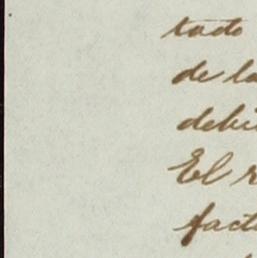 tado
de la
debi
El r
fact